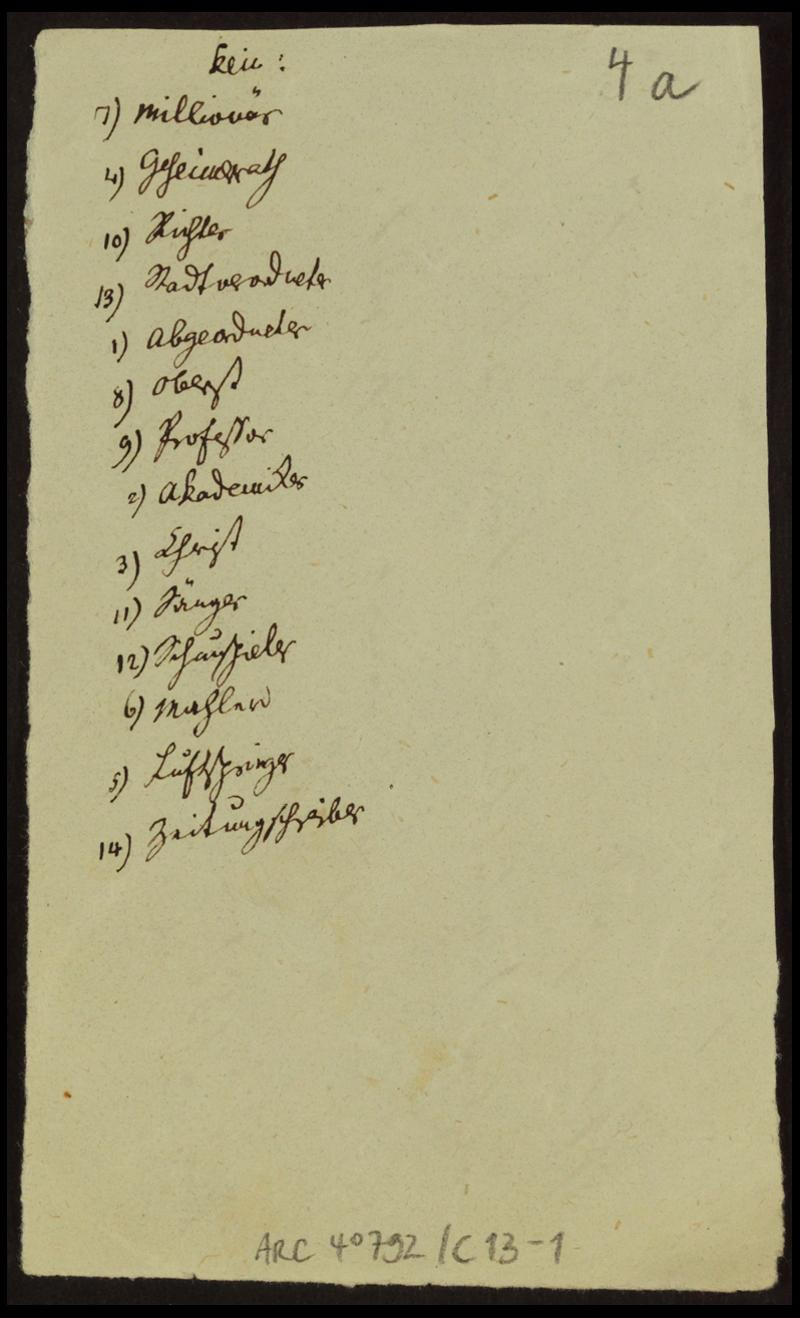 kein:
4a
7) Millionär
4) Geheimrath
10) Richter
13) Stadtverordneter
1) Abgeordneter
8) Oberst
9) Professor
2) Akademiker
3) Christ
11) Sänger
12) Schauspieler
6) Mahler
5) Luftspringer
14) Zeitungschreiber
ARC 4°792/C13-1